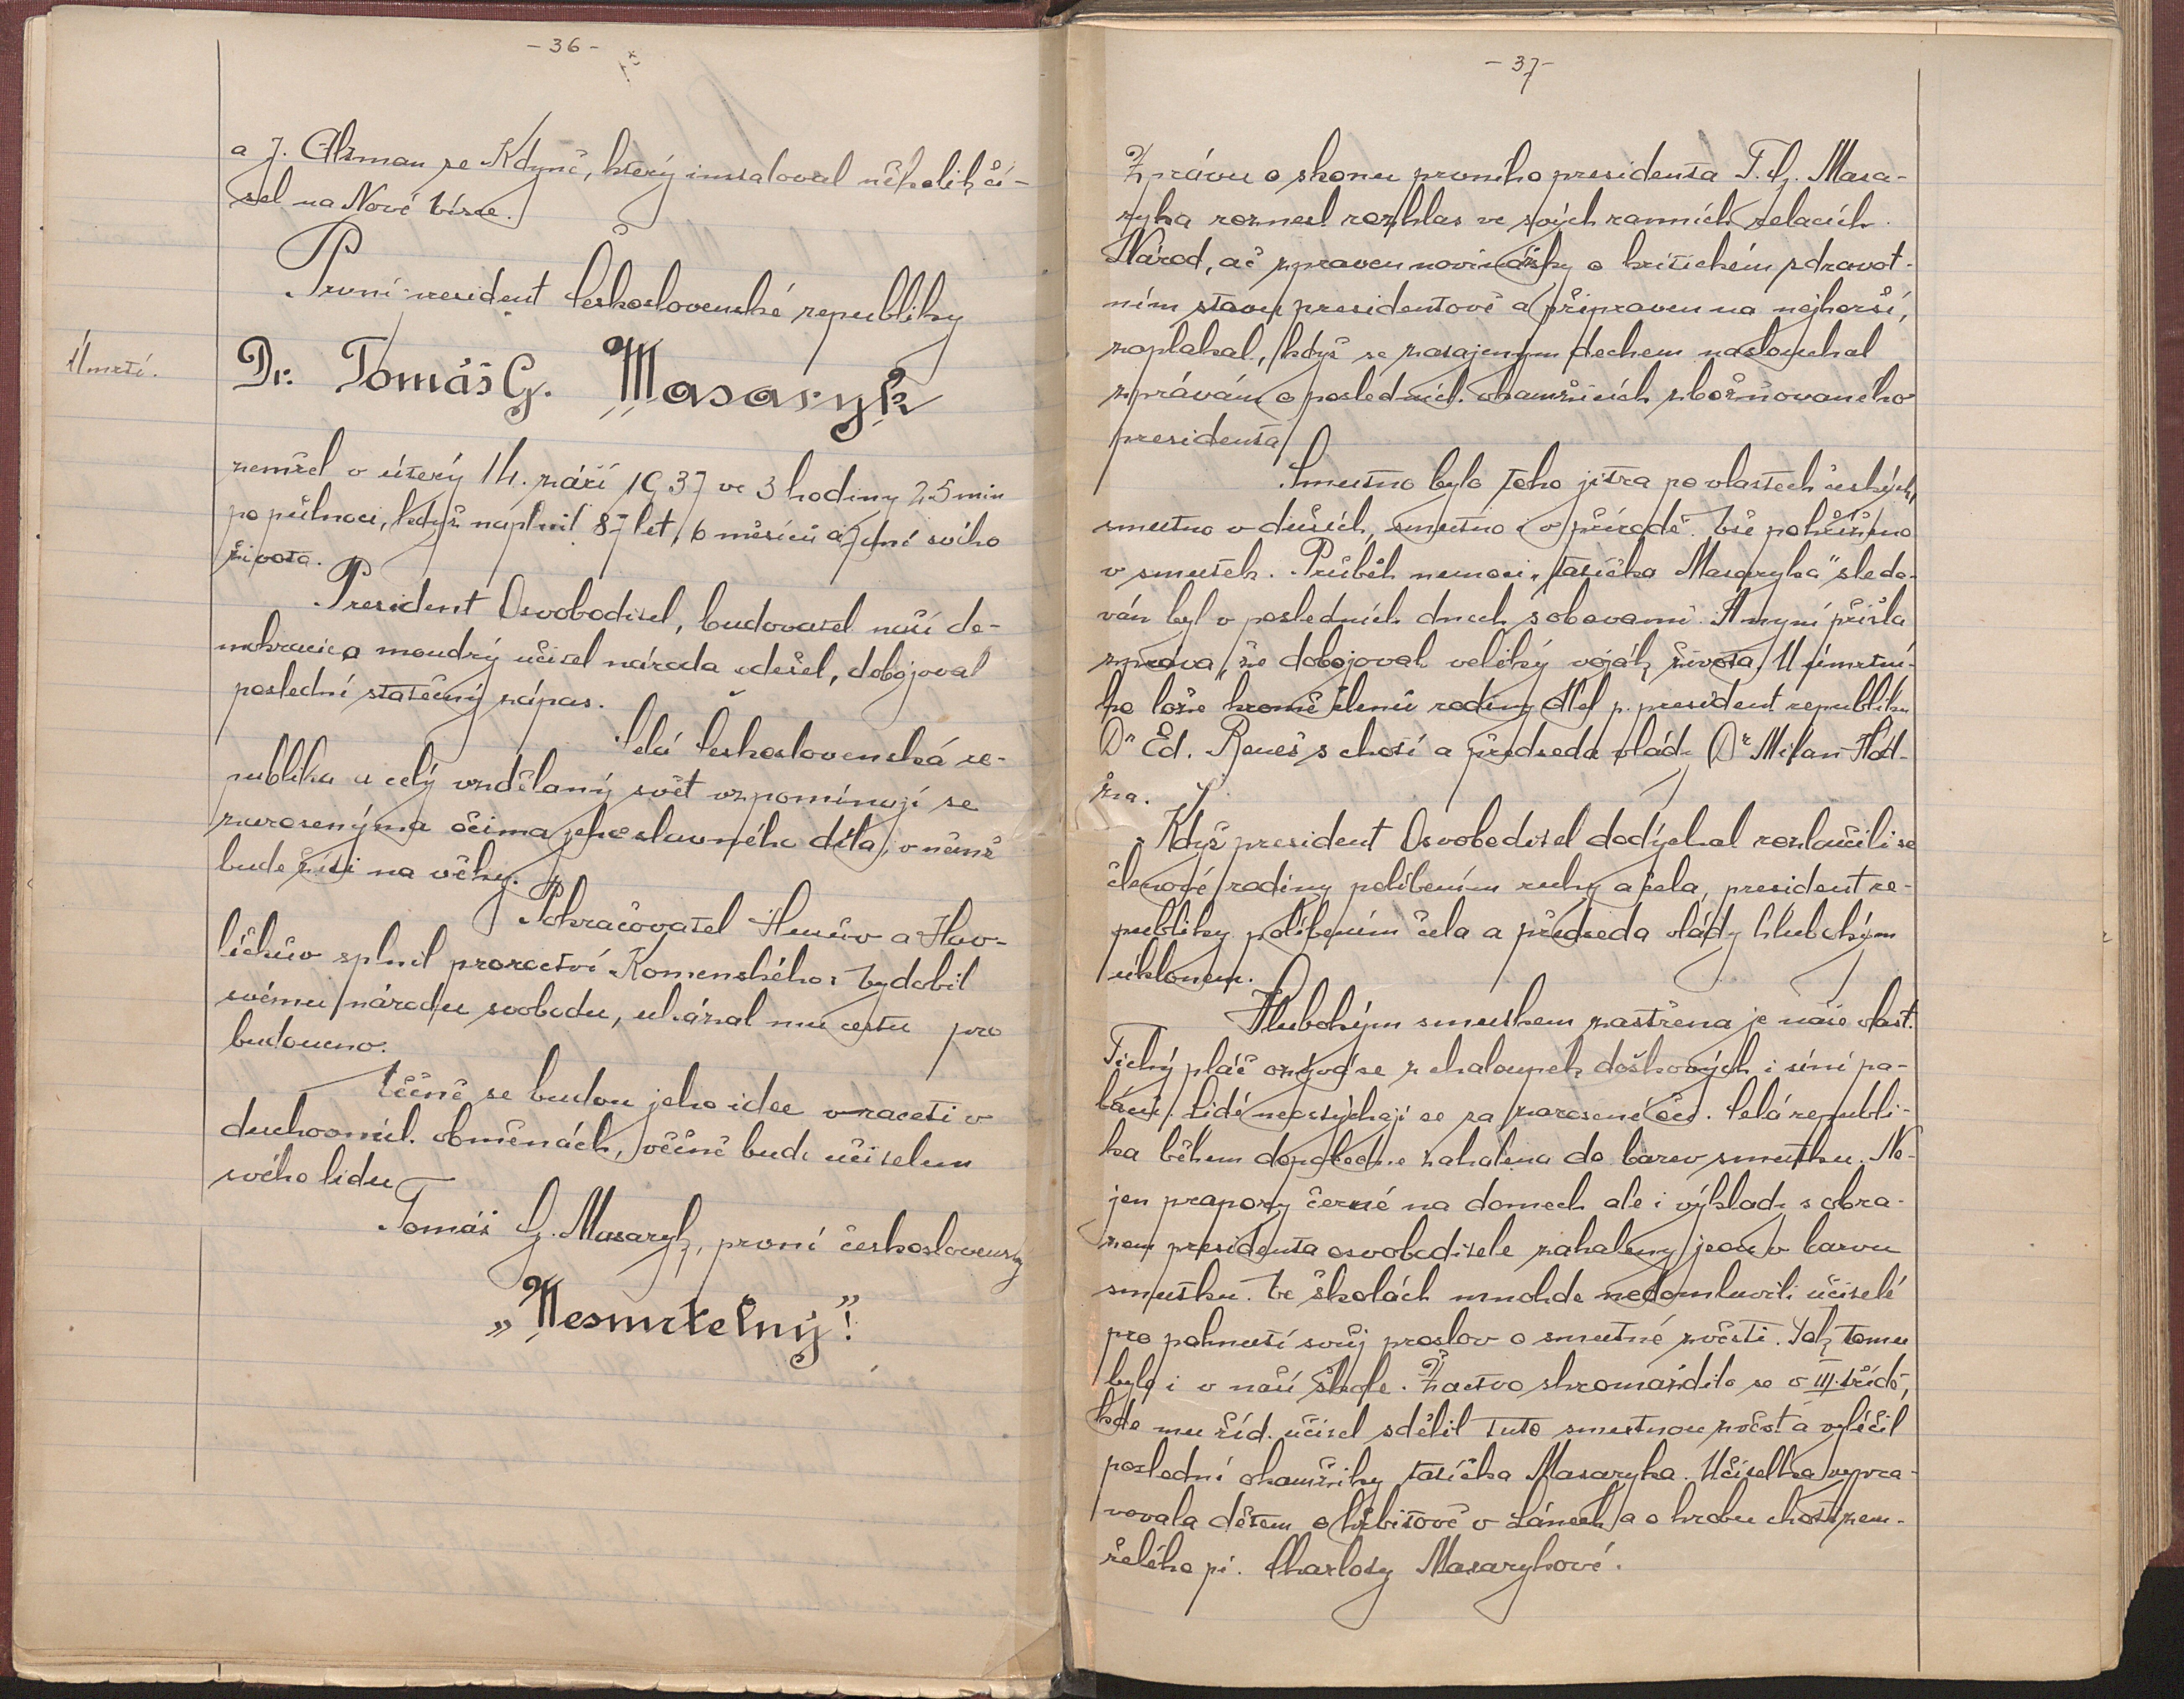 - 36 -
a J. Altman ze Kdyně, který instaloval několik čí-
sel na Nové Vísce.
První president Československé republiky
Úmrtí.
Dr. Tomáš G. Masaryk
zemřel v úterý 14. září 1937 ve 3 hodiny 25 min
po půlnoci, když naplnil 87 let, 6 měsíců a 7 dní svého
života.
President Osvoboditel, budovatel naší de-
mokracie a moudrý učitel národa odešel, dobojoval
poslední statečný zápas.
Celá Československá re-
publika a celý vzdělaný svět vzpomínají se
zarosenýma očima jeho slavného díla, v němž
bude žíti na věky.
Pokračovatel Husův a Hav-
líčkův splnil proroctví Komenského: Vydobil
svému národu svobodu, ukázal mu cestu pro
budoucno.
Věčně se budou jeho idee vraceti v
duchovních obměnách, věčně bude učitelem
svého lidu
Tomáš G. Masaryk, první československý
„Nesmrtelný"!
- 37 -
Zprávu o skonu prvního presidenta T. G. Masa-
ryka roznesl rozhlas ve svých ranních relacích.
Národ, ač zpraven novinářsky o kritickém zdravot-
ním stavu presidentově a připraven na nejhorší,
zaplakal, když se zatajeným dechem naslouchal
zprávám o posledních okamžicích zbožňovaného
presidenta
Smutno bylo toho jitra po vlastech českých,
smutno v duších, smutno i v přírodě. Vše pohříženo
v smutek. Průběh nemoci „tatíčka Masaryka" sledo-
ván byl v posledních dnech s obavami. A nyní přišla
zpráva, že dobojoval veliký voják života. U úmrtní-
ho lože kromě členů rodiny dlel p. president republiky
Dr Ed. Beneš s chotí a předseda vlády Dr Milan Hod-
ža.
Když president Osvoboditel dodýchal rozloučili se
členové rodiny políbením ruky a čela, president re-
publiky políbením čela a předseda vlády hlubokým
úklonem.
Hlubokým smutkem zastřena je naše vlast.
Tichý pláč ozývá se z chaloupek doškových i síní pa-
láců. Lidé neostýchají se za zarosené oči. Celá republi-
ka během dopoledne zahalena do barev smutku. Ne-
jen prapory černé na domech ale i výklady s obra-
zem presidenta osvoboditele zahaleny jsou v barvu
smutku. Ve školách mnohde nedomluvili učitelé
pro pohnutí svůj proslov o smutné zvěsti. Tak tomu
bylo i v naší škole. Žactvo shromáždilo se v III. třídě,
kde mu říd. učitel sdělil tuto smutnou zvěst a vylíčil
poslední okamžiky tatíčka Masaryka. Učitelka vypra-
vovala dětem o hřbitově v Lánech a o hrobu choti zem-
řelého pí. Charloty Masarykové.